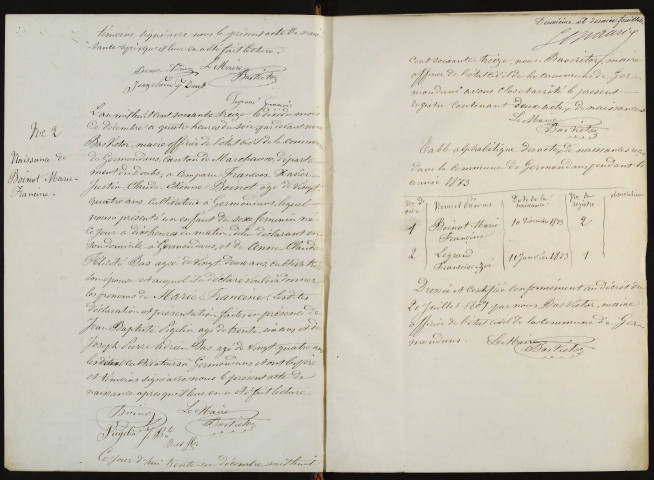 témoins signé avec nous le présent acte de nais-
sance après que il leur en a été fait lecture.
Le Maire
Bastietor
No 2
Naissance de
Boinot Marie
Francine
L'an mil huit cent soixante treize le dix du mois
de décembre à quatre heures du soir par devant nous
maire officier de l'état civil de la commune
de Germondans, canton de Marchaux, départe-
ment du Doubs, a comparu François Xavier
Justin Claude Etienne Boinot âgé de vingt
quatre ans, cultivateur à Germondans, lequel
nous a présenté un enfant du sexe féminin né
ce jour à dix heures du matin, de lui déclarant en
son domicile à Germondans, et de Anne Claude
Félicité Bas âgée de vingt deux ans, cultivatrice
son épouse et auquel il a déclaré vouloir donner
les prénoms de Marie Francine. Les dites
déclaration et présentation faites en présence de
Jean Baptiste âgé de trente six ans et de
Joseph Pierre Bas âgé de vingt quatre ans
les deux cultivateurs à Germondans et ont le père
et témoins signé avec nous le présent acte de
naissance après que il leur en a été fait lecture.
Boinot Le Maire
Bastietor
Ce jour d'hui trente un décembre mil huit
Deuxième et dernier feuillet
cent soixante treize, nous maire
officier de l'état civil de la commune de Ger-
mondans avons clos et arrêté le présent
registre contenant deux actes de naissances
Le Maire
Bastietor
Table alphabétique des actes de naissances
dans la commune de Germondans pendant l'
année 1873
No d'ordre Noms et Prénoms Date de la naissance No du registre observations
1 Boinot Marie Francine 10 Décembre 1873 2
2 Legrand Françoise Zoé 11 Janvier 1873 1
Dressée et certifiée conformément au décret du
20 Juillet 1807 par nous, maire
officier de l'état civil de la commune de Ger-
mondans. Le Maire
Bastietor